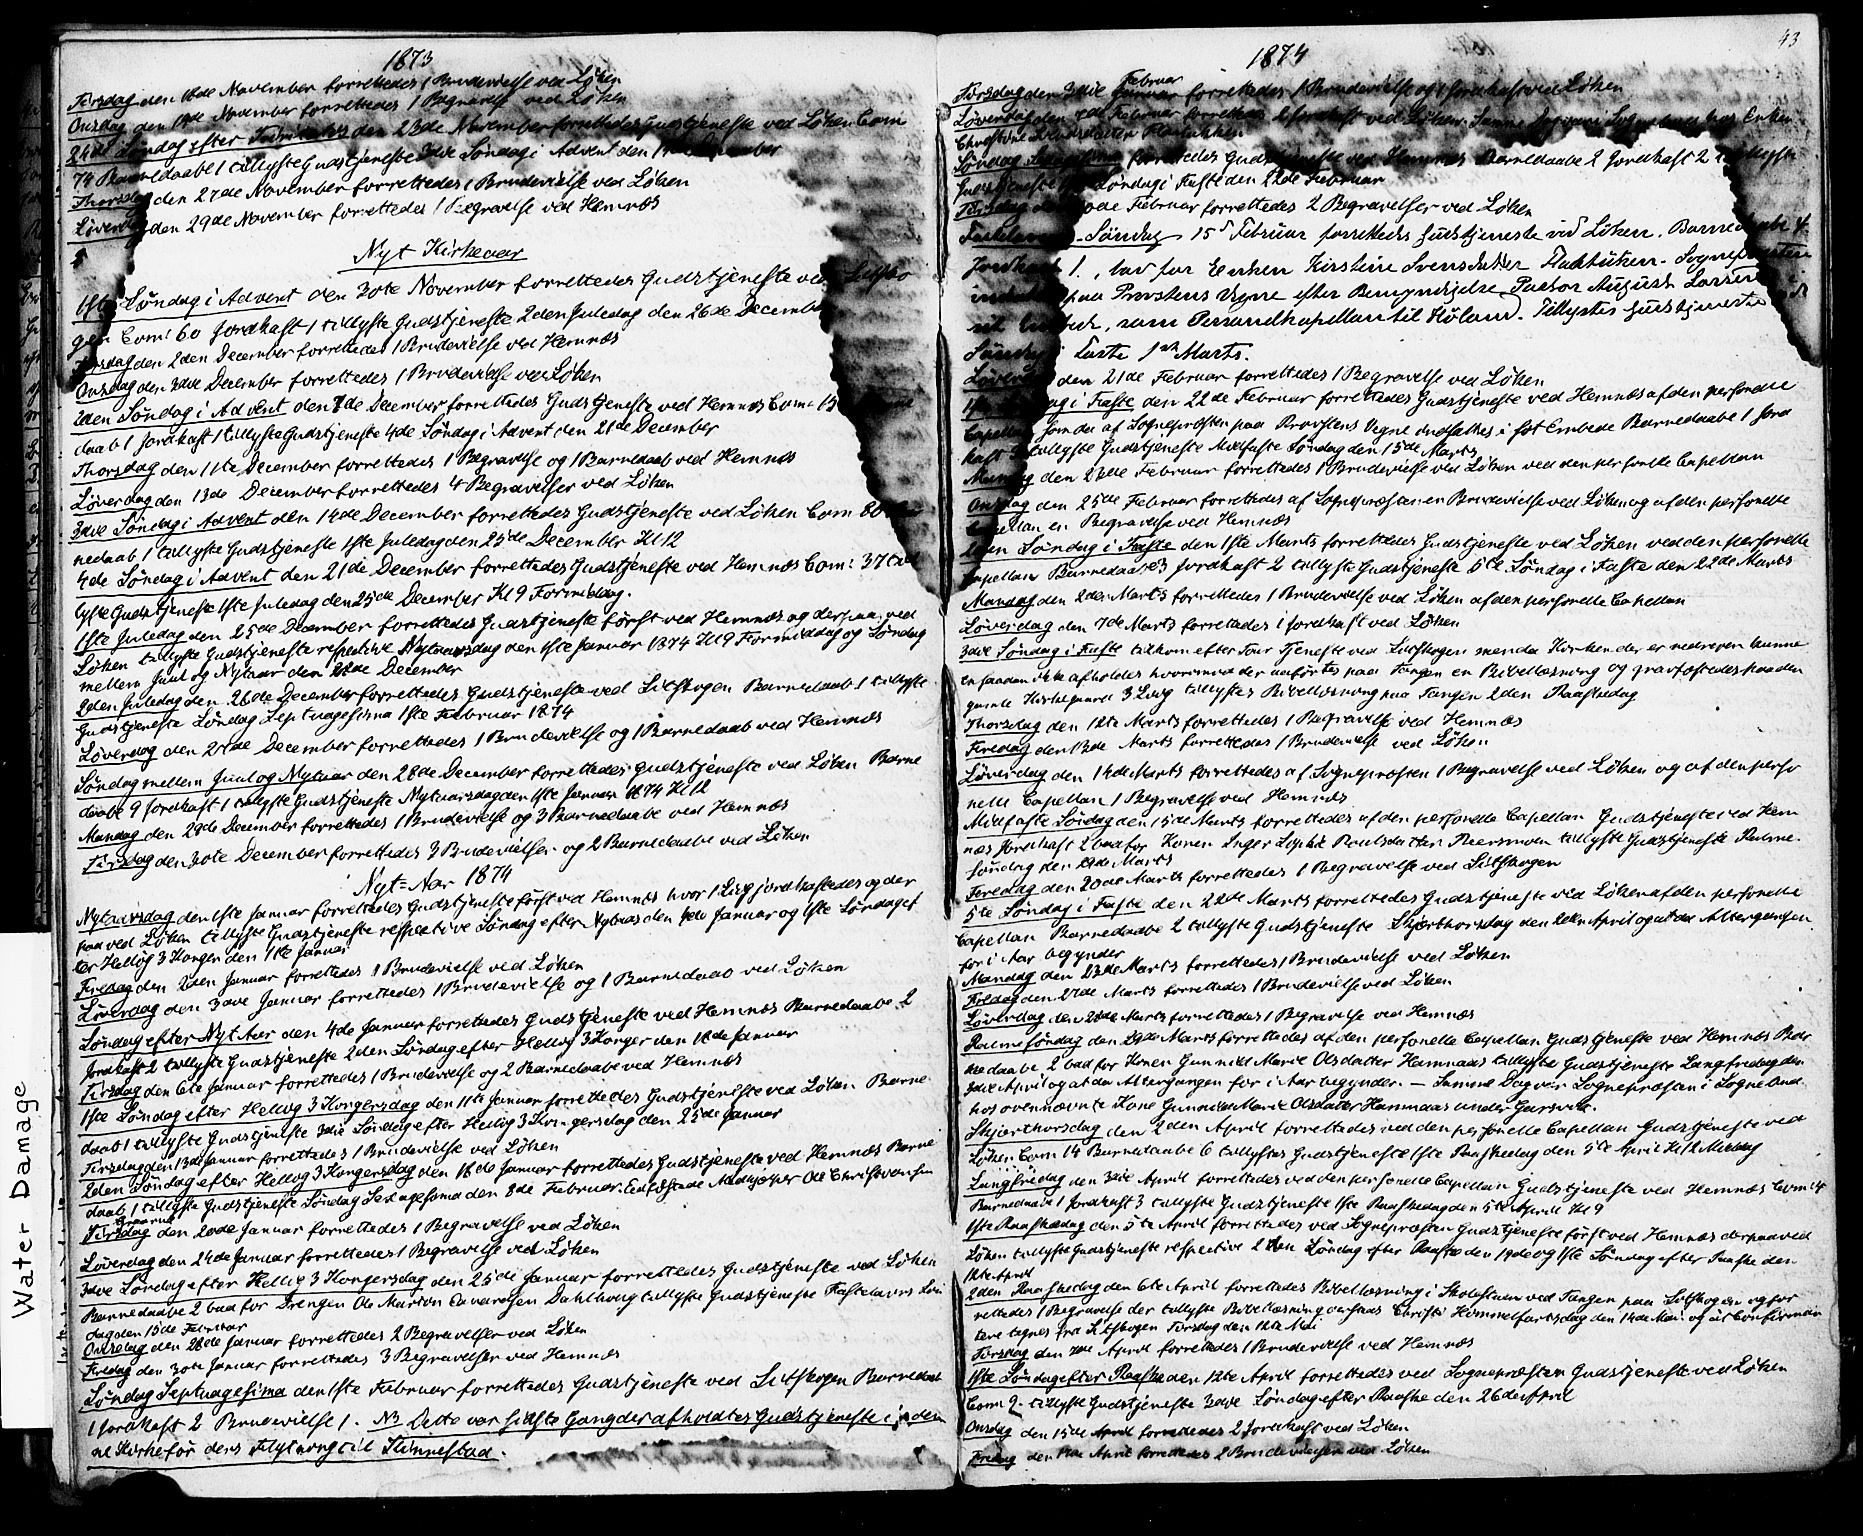 1873
Tirsdag den 18de November forrettedes 1 Brudevielse ved Löken
Onsdag den 19de November forrettedes 1 Begravelse ved Löken
24de Søndag efter Trinitatis den 23de November forrettedes Gudstjeneste ved Löken Com
74 Barnedaabe 1 tillyste Gudstjeneste 3die Søndag i Advent den 14de December
Thorsdag den 27de November forrettedes 1 Brudevielse ved Löken
Löverdag den 29de November forrettedes 1 Begravelse ved Hemnæs
Nyt Kirkeaar
1ste Søndag i Advent den 30te November forrettedes Gudstjeneste ved Sætsko
gen Com: 60 Jordkast 1 tillyste Gudstjeneste 2den Juledag den 26de December
Tirsdag den 2den December forrettedes 1 Brudevielse ved Hemnæs
Onsdag den 3die December forrettedes 1 Brudevielse ved Löken
2den Søndag i Advent den 7de December forrettedes Gudstjeneste ved Hemnæs Com: 15
daab 1 Jordkast 1 tillyste Gudstjeneste 4de Søndag i Advent den 21de December
Thorsdag den 11te December forrettedes 1 Begravelse og 1 Barnedaab ved Hemnæs
Löverdag den 13de December forrettedes 4 Begravelser ved Löken
3die Søndag i Advent den 14de December forrettedes Gudstjeneste ved Löken Com 80
nedaab 1 tillyste Gudstjeneste 1ste Juledag den 25de December Kl 12
4de Søndag i Advent den 21de December forrettedes Gudstjeneste ved Hemnæs Com: 37 til
lyste Gudstjeneste 1ste Juledag den 25de December Kl 9 Formidag.
1ste Juledag den 25de December forrettedes Gudstjeneste først ved Hemnæs og derpaa ved
Löken tillyste Gudstjeneste respective Nytaarsdag den 1ste Januar 1874 Kl 9 Formiddag og Søndag
mellem Juul og Nytaar den 28de December
2den Juledag den 26de December forrettedes Gudstjeneste ved Sitskogen Barnedaab 1 tillyste
Gudstjeneste Søndag Septuagesima 1ste Februar 1874
Löverdag den 27de December forrettedes 1 Brudevielse og 1 Barnedaab ved Hemnæs
Søndag mellem Juul og Nytaar den 28de December forrettedes Gudstjeneste ved Löken Barne
daabe 9 Jordkast 1 tillyste Gudstjeneste Nytaarsdag den 1ste Januar 1874 Kl 12
Mandag den 29de December forrettedes 1 Brudevielse og 3 Barnedaabe ved Hemnæs
Tirsdag den 30te December forrettedes 3 Brudevielser og 2 Barnedaabe ved Löken
Nyt=Aar 1874
Nytaarsdag den 1ste Januar forrettedes Gudstjeneste først ved Hemnæs hvor 1 Liig jordkastedes og der
paa ved Löken tillyste Gudstjeneste respective Søndag efter Nytaar den 4de Januar og 1ste Søndag ef
ter Hellig 3 Konger den 11te Januar
Fredag den 2den Januar forrettedes 1 Brudevielse ved Löken
Löverdag den 3die Januar forrettedes 1 Brudevielse og 1 Barnedaab ved Löken
Søndag efter Nyt Aar den 4de Januar forrettedes Gudstjeneste ved Hemnæs Barnedaabe 2
Jordkast 2 tillyste Gudstjeneste 2den Søndag efter Hellig 3 Konger den 18de Januar
Tirsdag den 6te Januar forrettedes 1 Brudevielse og 2 Barnedaabe ved Hemnæs
1ste Søndag efter Hellig 3 Kongersdag den 11te Januar forrettedes Gudstjeneste ved Löken Barne
daab 1 tillyste Gudstjeneste 3die Søndag efter Hellig 3 Kongersdag den 25de Januar
Tirsdag den 13de Januar forrettedes 1 Brudevielse ved Löken
2den Søndag efter Hellig 3 Kongersdag den 18de Januar forrettedes Gudstjeneste ved Hemnæs Barne
daab 1 tillyste Gudstjeneste Søndag Sexagesima den 8de Februar. Ole Christiansen
Graarud
Tirsdag den 20de Januar forrettedes 1 Begravelse ved Löken
Löverdag den 24de Januar forrettedes 1 Begravelse ved Löken
3die Søndag efter Hellig 3 Kongersdag den 25de Januar forrettedes Gudstjeneste ved Löken
Barnedaabe 2 bad for Drengen Ole Martin Dahlhoug tillyste Gudstjeneste Fastelavns Søn
dag den 15de Februar
Onsdag den 28de Januar forrettedes 2 Begravelser ved Löken
Fredag den 30te Januar forrettedes 3 Begravelser ved Hemnæs
Søndag Septuagesima den 1ste Februar forrettedes Gudstjeneste ved Sitskogen Barnedaab
1 Jordkast 2 Brudevielse 1. NB Dette var sidste Gang der afholdtes Gudstjeneste i den
ne Kirke før dens Flytning til Kinnestad.
43
1874
Februar
Tirsdag den 3die Januar forrettedes 1 Brudevielse og 1 Jordkast ved Löken
Löverdag den Februar forrettedes 2 Jordkast ved Löken. Samme Dag var Sogne hos Enken
Christine Svendsdatter Flaatukken
Søndag Sexagesima forrettedes Gudstjeneste ved Hemnæs Barnedaabe 2 Jordkast 2 tillyste
Gudstjeneste Søndag i Faste den 22de Februar
Tirsdag den 10de Februar forrettedes 2 Begravelser ved Löken
Fastelavns-Søndag 15de Februar forrettedes Gudstjeneste ved Löken. Barnedaabe 4.
Jordkast 1., bad for Enken Kirstine Svensdatter Flaatukken. Sognepræsten
indsatte paa Provstens Vegne efter Bemyndigelse Pastor August Larsen
til Embede, som Personelkapellan til Høland. Tillystes Gudstjeneste
Søndag i Faste 1ste Marts.
Löverdag den 21de Februar forrettedes 1 Begravelse ved Löken
1ste Søndag i Faste den 22de Februar forrettedes Gudstjeneste ved Hemnæs af den personelle
Capellan som da af Sognepræsten paa Provstens Vegne indsattes i sit Embede Barnedaabe 1 Jord
kast 3 tillyste Gudstjeneste Midfaste Søndag den 15de Marts
Mandag den 23de Februar forrettedes 1 Brudevielse ved Löken ved den personelle Capellan
Onsdag den 25de Februar forrettedes af Sognepræsten en Brudevielse ved Löken og af den personelle
Capellan en Begravelse ved Hemnæs
2den Søndag i Faste den 1ste Marts forrettedes Gudstjeneste ved Löken ved den personelle
Capellan Barnedaabe 3 Jordkast 2 tillyste Gudstjeneste 5te Søndag i Faste den 22de Marts
Mandag den 2den Marts forrettedes 1 Brudevielse ved Löken af den personelle Capellan
Löverdag den 7de Marts forrettedes 1 Jordkast ved Löken
3die Søndag i Faste tilkom efter Tour Tjeneste ved Sitskogen men da Kirken der er nedreven kunne
en saadan ikke afholdes hvorimod der udførtes paa Tangen en Bibellæsning og gravfæstedes paa den
gamle Kirkegaard 3 Liig tillystes Bibellæsning paa Tangen 2den Paaskedag
Thorsdag den 12te Marts forrettedes 1 Begravelse ved Hemnæs
Fredag den 13de Marts forrettedes 1 Brudevielse ved Löken
Löverdag den 14de Marts forrettedes af Sognepræsten 1 Begravelse ved Löken og af den perso
nelle Capellan 1 Begravelse ved Hemnæs
Midfaste Søndag den 15de Marts forrettedes af den personelle Capellan Gudstjeneste ved Hem
næs Jordkast 2 bad for Konen Inger Sophie Paulsdatter tillyste Gudstjeneste Palme-
søndag den 29de Marts
Fredag den 20de Marts forrettedes 1 Begravelse ved Sitskogen
5te Søndag i Faste den 22de Marts forrettedes Gudstjeneste ved Löken af den personelle
Capellan Barnedaabe 2 tillyste Gudstjeneste Skjærthorsdag den 2den April og at da Altergangen
for i Aar begynder
Mandag den 23de Marts forrettedes 1 Brudevielse ved Löken
Fredag den 27de Marts forrettedes 1 Brudevielse ved Löken
Löverdag den 28de Marts forrettedes 1 Begravelse ved Hemnæs
Palmesøndag den 29de Marts forrettedes af den personelle Capellan Gudstjeneste ved Hemnæs Bar
nedaabe 2 bad for Konen Gunnild Marie Olsdatter Hamnaas tillyste Gudstjeneste Langfredag den
3die April og at da Altergangen for i Aar begynder. — Samme Dag var Sognepræsten i Sognebud
hos ovennævnte Kone Gunnild Marie Olsdatter Hamnaas under
Skjærthorsdag den 2den April forrettedes ved den personelle Capellan Gudstjeneste ved
Löken Com 14 Barnedaabe 6 tillystes Gudstjeneste 1ste Paaskedag den 5te April Kl 12 Middag
Langfredag den 3die April forrettedes ved den personelle Capellan Gudstjeneste ved Hemnæs Com: 4
Barnedaab 1 Jordkast 3 tillyste Gudstjeneste 1ste Paaskedag den 5te April Kl 9
1ste Paaskedag den 5te April forrettedes ved Sognepræsten Gudstjeneste først ved Hemnæs derpaa ved
Löken tillyste Gudstjeneste respective 2den Søndag efter Paaske den 19de og 1ste Søndag efter Paaske den
12te April
2den Paaskedag den 6te April forrettedes Bibellæsning i Skolestuen ved Tangen paa Sitskogen og for
rettedes 1 Begravelse der tillyste Bibellæsning Christi Himmelfartsdag den 14de Mai og at Confirman
tere tegnes fra Sitskogen Tirsdag den 12te Mai
Tirsdag den 7de April forrettedes 1 Brudevielse ved Hemnæs
1ste Søndag efter Paaske den 12te April forrettedes ved Sognepræsten Gudstjeneste ved Löken
Com 2. tillyste Gudstjeneste 3die Søndag efter Paaske den 26de April
Onsdag den 15de April forrettedes 2 Jordkast ved Löken
Fredag den 17de April forrettedes 2 Brudevielser ved Löken
Water Damage